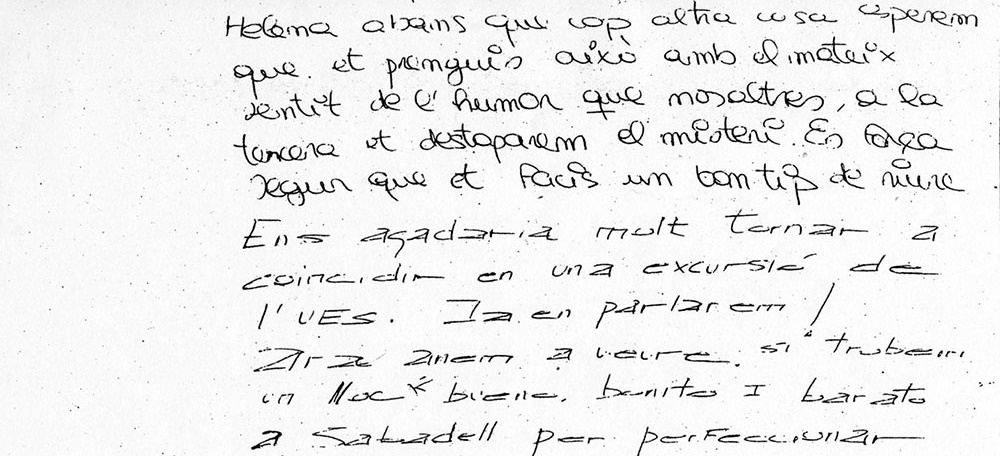 Helena abans que cap altra cosa esperem
que et prenguis això amb el mateix
sentit de l'humor que nosaltres, a la
tercera et destaparem el misteri. És força
segur que et facis un bon tip de riure
Ens agadaria molt tornar a
coincidir en una excursió de
l'UES. Ja en parlarem /
Ara anem a veure. si trobem
un lloc * bieno. bonito I barato
a Sabadell per perfeccionar